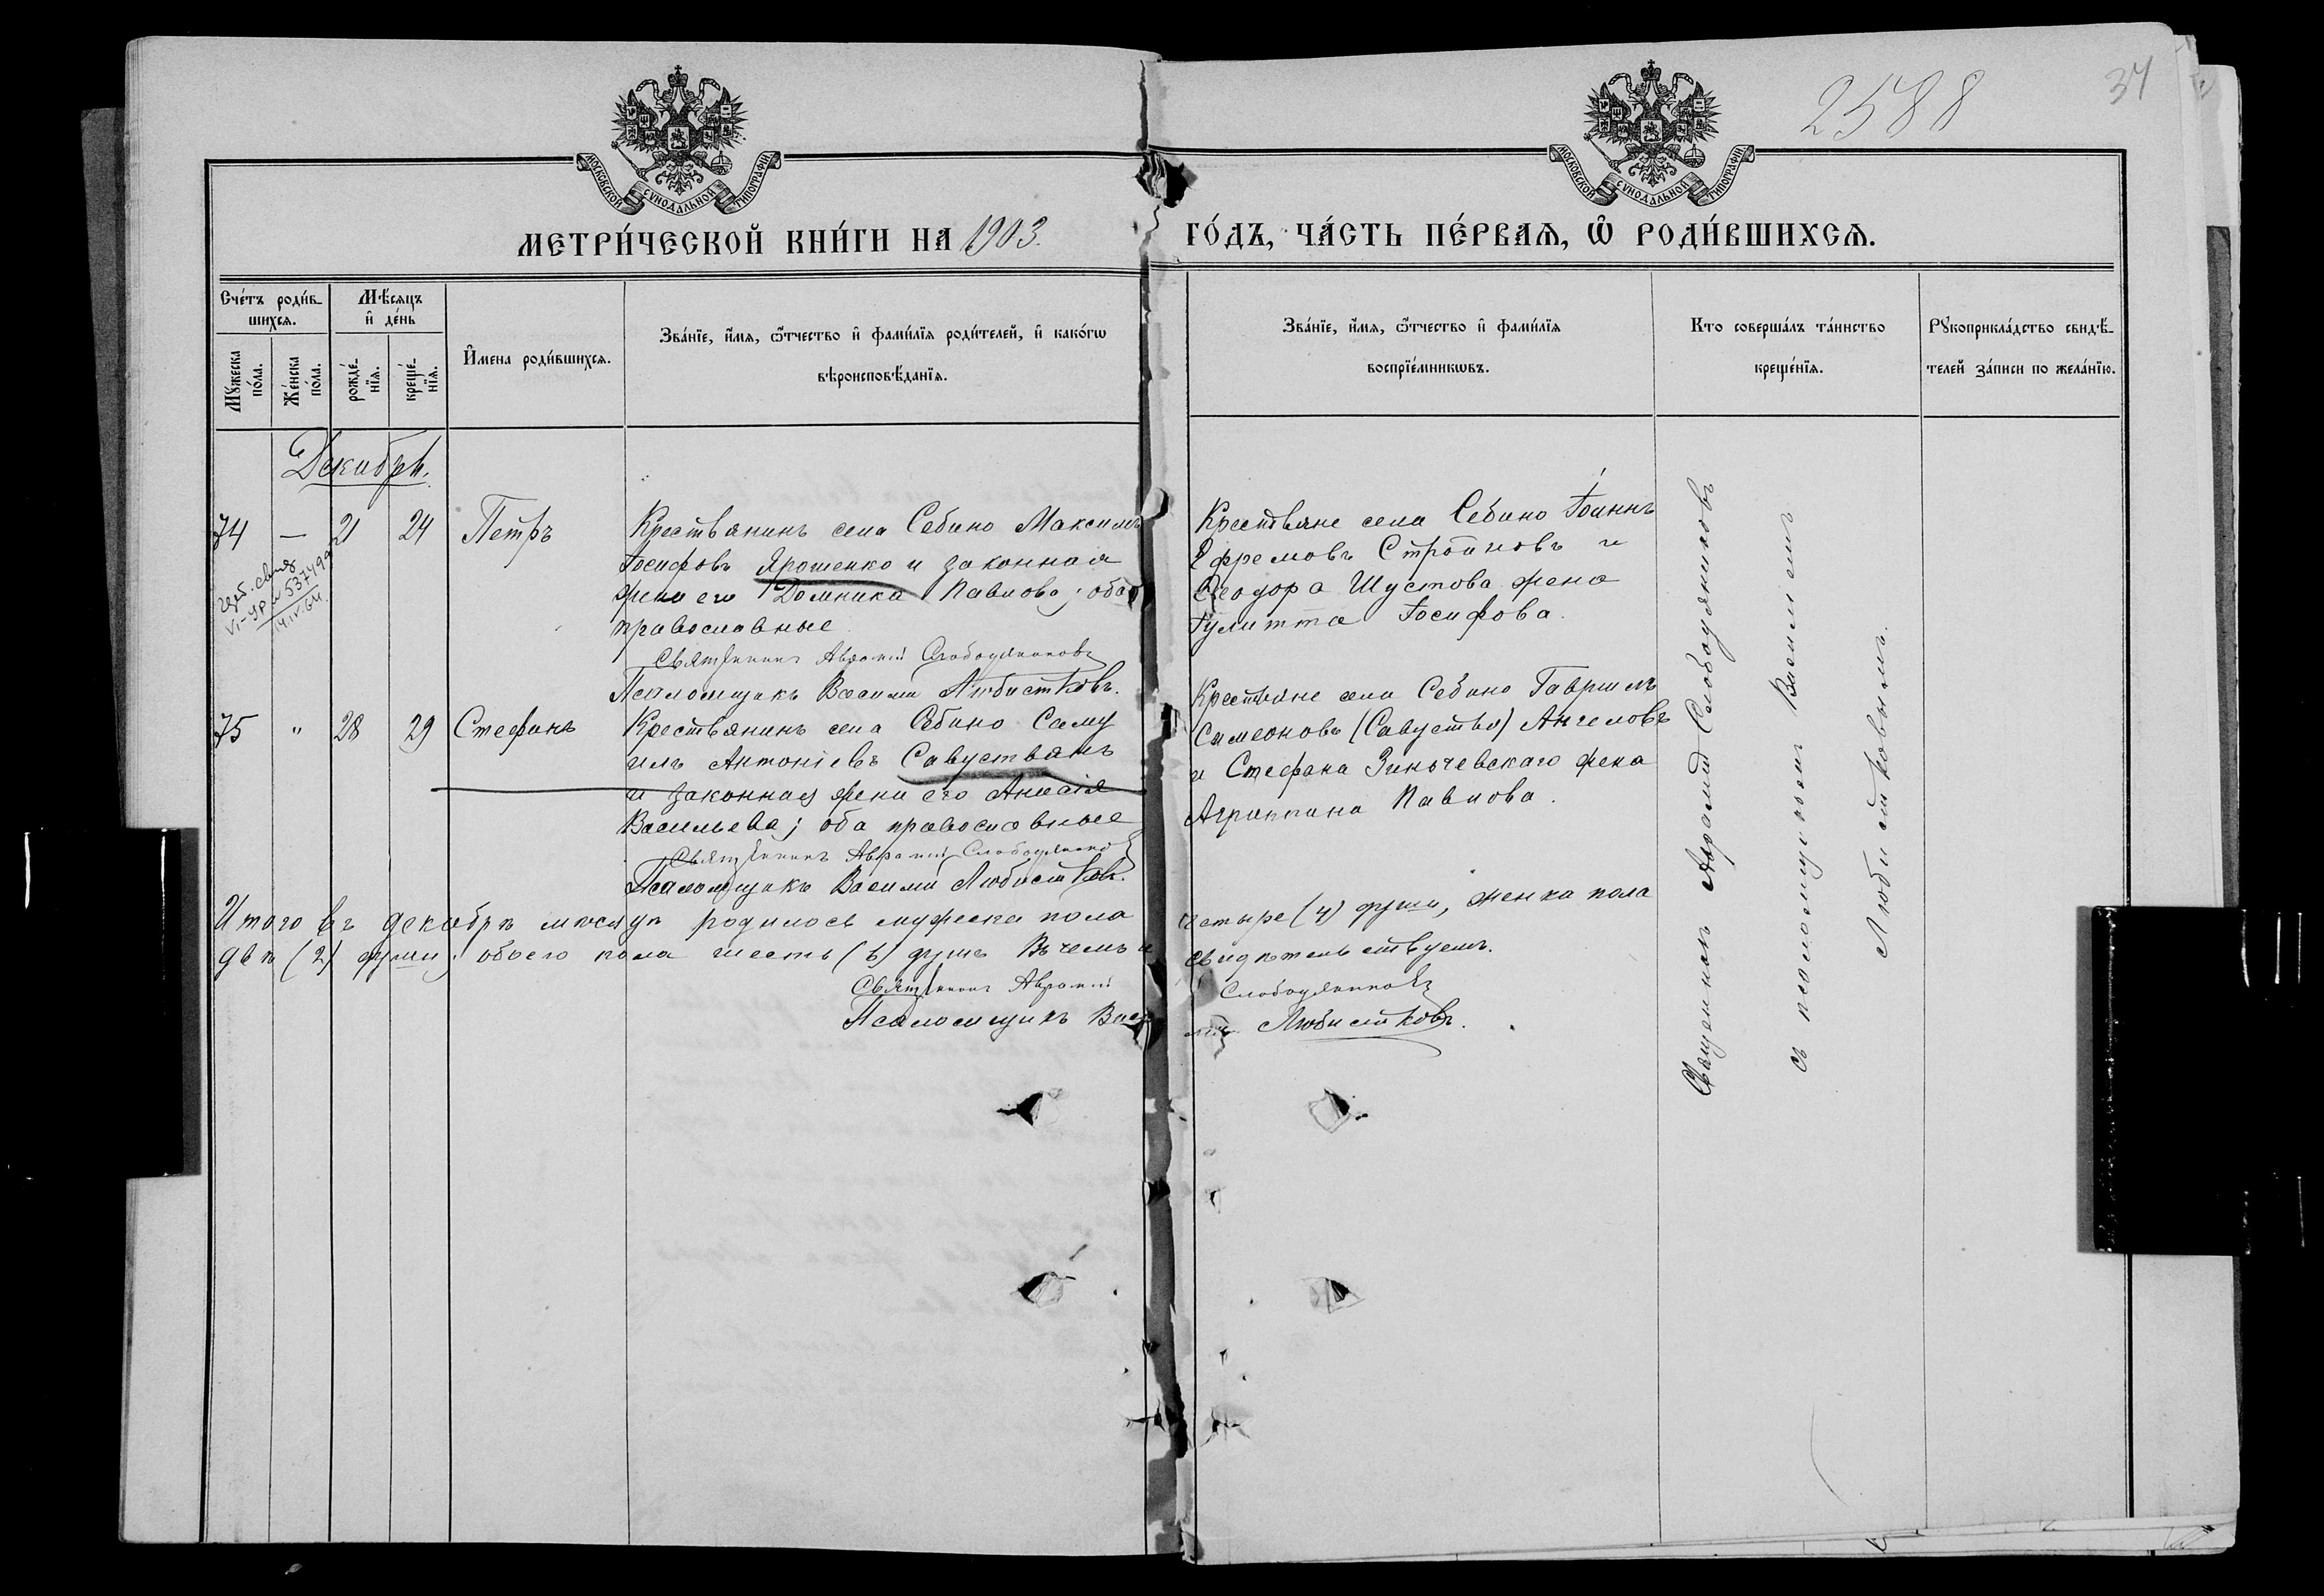 2588
34
МОСКОВСКОЙ СѴНОДАЛЬНОЙ ТИПОГРАФІИ
МОСКОВСКОЙ СѴНОДАЛЬНОЙ ТИПОГРАФІИ
МЕТРИ́ЧЕСКОЙ КНИ́ГИ НА 1903.
ГО́ДЪ, ЧА́СТЬ ПЕ́РВАѦ, Ѽ РОДИ́ВШИХСѦ.
Сче́тъ роди́в-
шихсѧ.
Мѣ́сѧцъ
и҆ де́нь
Мꙋ́жеска по́ла.
Же́нска по́ла.
рожде́-
нїѧ.
креще́-
нїѧ.
И҆мена роди́вшихсѧ.
Зва́нїе, и҆́мѧ, ѻ҆́тчество и҆ фами́лїѧ роди́телей, и҆ како́гѡ
вѣроисповѣ́данїѧ.
Зва́нїе, и҆́мѧ, ѻ҆́тчество и҆ фами́лїѧ
воспрїе́мникѡвъ.
Кто соверша́лъ та́инство
креще́нїѧ.
Рꙋкоприкла́дство свидѣ́-
телей за́писи по жела́нїю.
Декабрь.
74 — 21 24 Петръ
Крестьянинъ села Себино Максимъ
Іосифовъ Ярошенко и законная
жена его Домника Павлова; оба
православные
Священникъ Аврамій Слободяниковъ
Псаломщикъ Василий Любистковъ.
Крестьяне села Себино Іоаннъ
Ефремовъ Стояновъ и
Ѳеодора Шустова жена
Іулитта Іосифова.
75 " 28 29 Стефанъ
Крестьянинъ села Себино Саму
илъ Антоніевъ Савуствянъ
и законная жена его Анисія
Васильева; оба православные
Священникъ Аврамій Слободяниковъ
Псаломщикъ Василий Любистковъ.
Крестьяне села Себино Гавриилъ
Симеоновъ (Савуствя) Ангеловъ
и Стефана Зиньчевскаго жена
Агриппина Павлова.
Священникъ Аврамій Слободяниковъ
съ псаломщикомъ Василиемъ
Любистковымъ.
Итого въ декабрѣ мѣсяцѣ родилось мужеска пола четыре (4) души, женска пола
двѣ (2) души; обоего пола шесть (6) душъ. Въ чемъ и свидѣтельствуемъ.
Священникъ Аврамій Слободяниковъ
Псаломщикъ Василий Любистковъ.